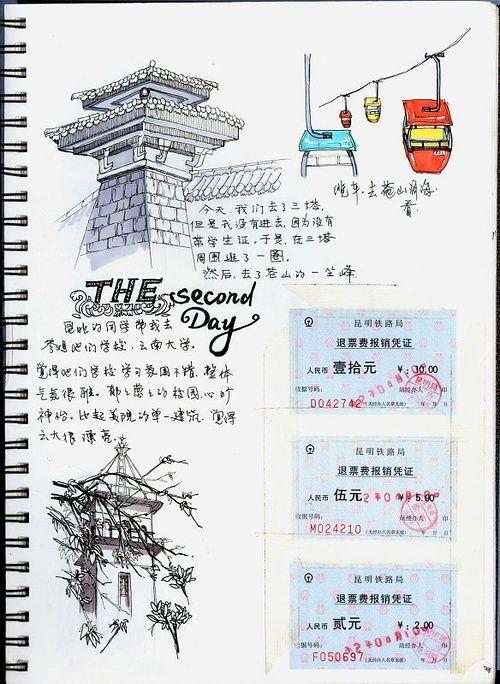 缆车.去苍山洱海
看.
今天.我们去了三塔.
但是我没有进去,因为没有
带学生证.于是,在三塔
周围逛了一圈.
然后.去了苍山的一坐峰
THE second
Day
昆明的同学带我去
参观他们学校.云南大学.
觉得他们学校学习氛围不错.整体
气氛很雅.
神怡.比起美院的单一建筑.觉得
云大很漂亮.
昆明铁路局
退票费报销凭证
人民币 壹拾元 ¥:10.00
收据号码: 站经办人 印
D042742 (无经办人名章无效) 年 月 日
昆明铁路局
退票费报销凭证
人民币 伍元 ¥:5.00
收据号码: 站经办人 印
M024210 (无经办人名章无效) 年 月 日
昆明铁路局
退票费报销凭证
人民币 贰元 ¥:2.00
收据号码: 站经办人 印
F050697 (无经办人名章无效) 年 月 日